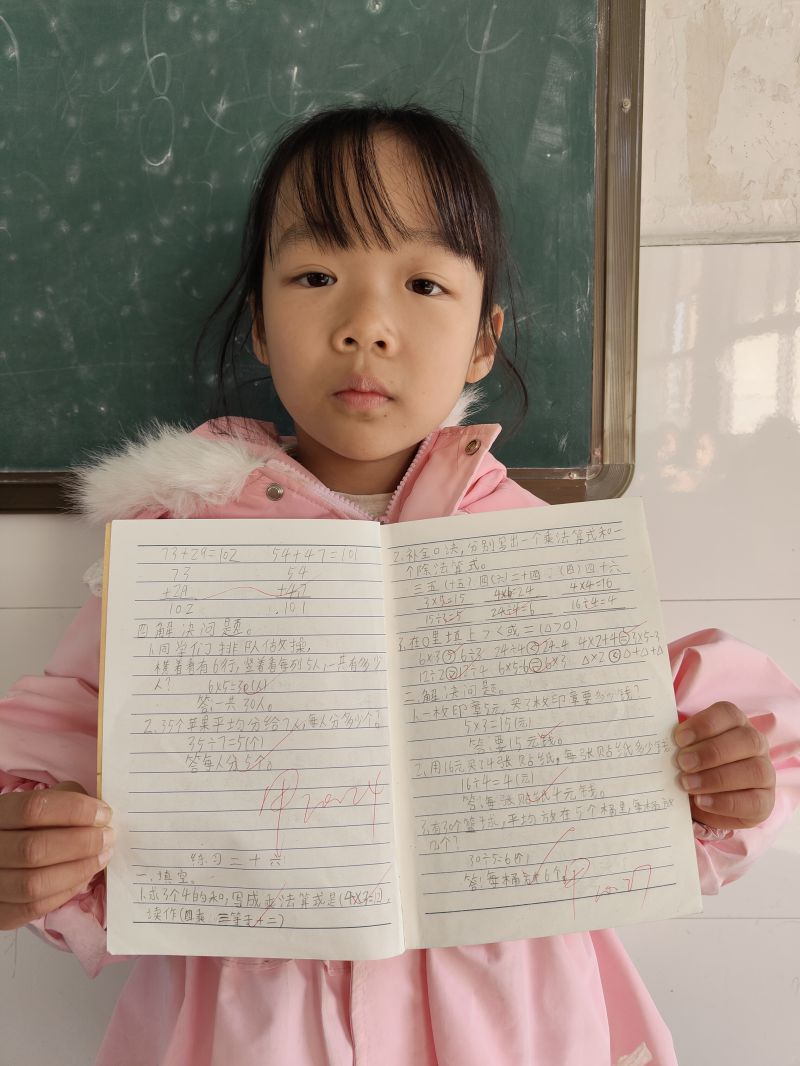 73+29=102 54+47=101
73 54
+29 +47
102 101
四.解决问题。
1.同学们排队做操,
横着看有6行,竖着看每列5人,一共有多少
人?
6×5=30(人)
答:一共30人。
2.35个苹果平均分给7人,每人分多少个?
35÷7=5(个)
答每人分5个。
甲
练习二十六
一.填空。
1.求3个4的和,写成乘法算式是(4×3=12),
读作(四乘三等于十二)
2.补全口决,分别写出一个乘法算式和一
个除法算式。
三五(十五) 四(六)二十四 (四)四十六
3×5=15 4×6=24 4×4=16
15÷3=5 24÷4=6 16÷4=4
3.在〇里填上>く或=(△>0)
6×3>6÷3 24÷4<24-4 4×2+4=3×5-3
12÷2>12÷4 6×5-6=6×3 △×2<△+△+△
二.解决问题。
1.一枚印章5元,买3枚印章要多少钱?
5×3=15(元)
答:要15元钱。
2.用16元买24张贴纸,每张贴纸多少
16÷4=4(元)
答:每张贴纸4元钱。
3.有30个篮球,平均放在5个桶里,每桶放
几个?
30÷5=6(个)
答:每桶6个。
甲